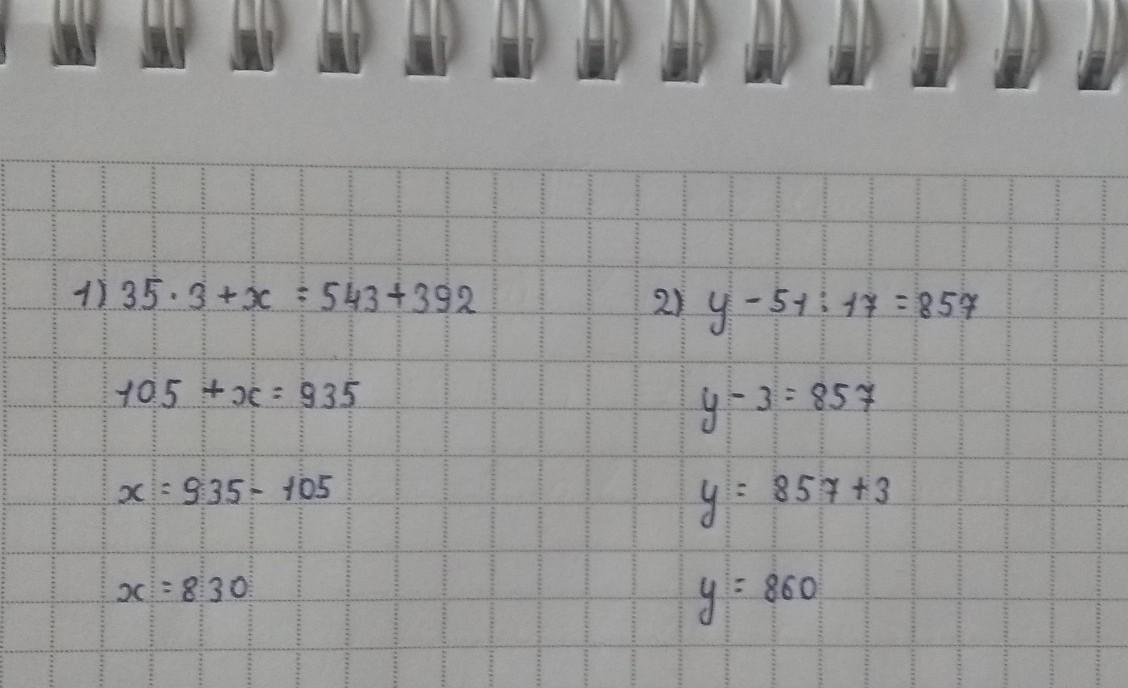 1) 35 · 3 + x = 543 + 392
105 + x = 935
x = 935 - 105
x = 830
2) y - 51 : 17 = 857
y - 3 = 857
y = 857 + 3
y = 860